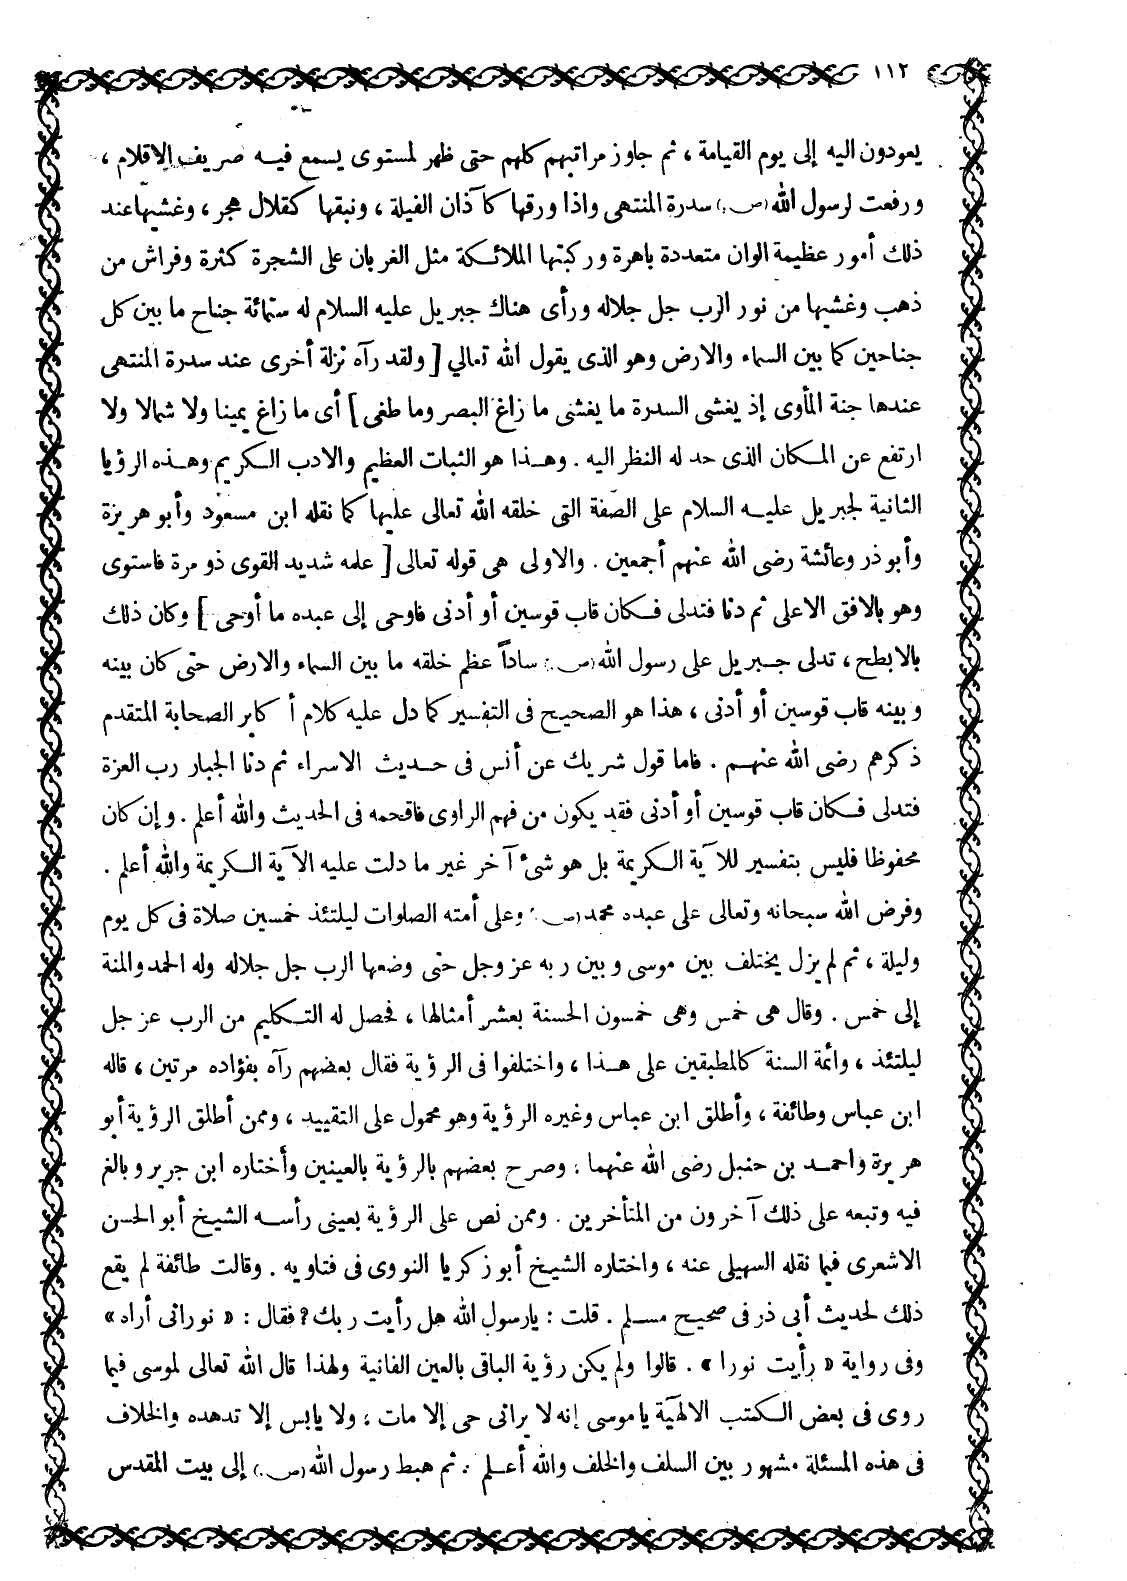 ١١٢
يعودون اليه إلى يوم القيامة ، ثم جاوز مراتبهم كلهم حتى ظهر لمستوى يسمع فيه صريف الاقلام ،
ورفعت لرسول الله (ص) سدرة المنتهى واذا ورقها كآذان الفيلة ، ونبقها كقلال هجر ، وغشيها عند
ذلك أمور عظيمة الوان متعددة باهرة وركبتها الملائكة مثل الغربان على الشجرة كثرة وفراش من
ذهب وغشيها من نور الرب جل جلاله ورأى هناك جبريل عليه السلام له ستمائة جناح ما بين كل
جناحين كما بين السماء والارض وهو الذى يقول الله تعالي [ ولقد رآه نزلة أخرى عند سدرة المنتهى
عندها جنة المأوى إذ يغشى السدرة ما يغشى ما زاغ البصر وما طغى ] أى ما زاغ يمينا ولا شمالا ولا
ارتفع عن المكان الذى حد له النظر اليه . وهذا هو الثبات العظيم والادب الكريم وهذه الرؤيا
الثانية لجبريل عليه السلام على الصفة التى خلقه الله تعالى عليها كما نقله ابن مسعود وأبو هريرة
وأبو ذر وعائشة رضى الله عنهم أجمعين . والاولى هى قوله تعالى [ علمه شديد القوى ذو مرة فاستوى
وهو بالافق الاعلى ثم دنا فتدلى فكان قاب قوسين أو أدنى فاوحى إلى عبده ما أوحى ] وكان ذلك
بالابطح ، تدلى جبريل على رسول الله (ص) ساداً عظم خلقه ما بين السماء والارض حتى كان بينه
وبينه قاب قوسين أو أدنى ، هذا هو الصحيح فى التفسير كما دل عليه كلام أكابر الصحابة المتقدم
ذكرهم رضى الله عنهم . فاما قول شريك عن أنس فى حديث الاسراء ثم دنا الجبار رب العزة
فتدلى فكان قاب قوسين أو أدنى فقد يكون من فهم الراوى فاقحمه فى الحديث والله أعلم . وإن كان
محفوظا فليس بتفسير للآية الكريمة بل هو شىء آخر غير ما دلت عليه الآية الكريمة والله أعلم .
وفرض الله سبحانه وتعالى على عبده محمد (ص) وعلى أمته الصلوات ليلتئذ خمسين صلاة فى كل يوم
وليلة ، ثم لم يزل يختلف بين موسى وبين ربه عز وجل حتى وضعها الرب جل جلاله وله الحمد والمنة
إلى خمس . وقال هى خمس وهى خمسون الحسنة بعشر أمثالها ، فحصل له التكليم من الرب عز جل
ليلتئذ ، وائمة السنة كالمطبقين على هذا ، واختلفوا فى الرؤية فقال بعضهم رآه بفؤاده مرتين ، قاله
ابن عباس وطائفة ، وأطلق ابن عباس وغيره الرؤية وهو محمول على التقييد ، وممن أطلق الرؤية أبو
هريرة واحمد بن حنبل رضى الله عنهما ، وصرح بعضهم بالرؤية بالعينين وأختاره ابن جرير وبالغ
فيه وتبعه على ذلك آخرون من المتأخرين . وممن نص على الرؤية بعينى رأسه الشيخ أبو الحسن
الاشعرى فيما نقله السهيلى عنه ، واختاره الشيخ أبو زكريا النووى فى فتاويه . وقالت طائفة لم يقع
ذلك لحديث أبى ذر فى صحيح مسلم . قلت : يارسول الله هل رأيت ربك ؟ فقال : « نورانى أراه »
وفى رواية « رأيت نورا » . قالوا ولم يكن رؤية الباقى بالعين الفانية ولهذا قال الله تعالى لموسى فيما
روى فى بعض الكتب الالهية ياموسى إنه لا يرانى حى إلا مات ، ولا يابس إلا تدهده والخلاف
فى هذه المسئلة مشهور بين السلف والخلف والله أعلم . ثم هبط رسول الله (ص) إلى بيت المقدس